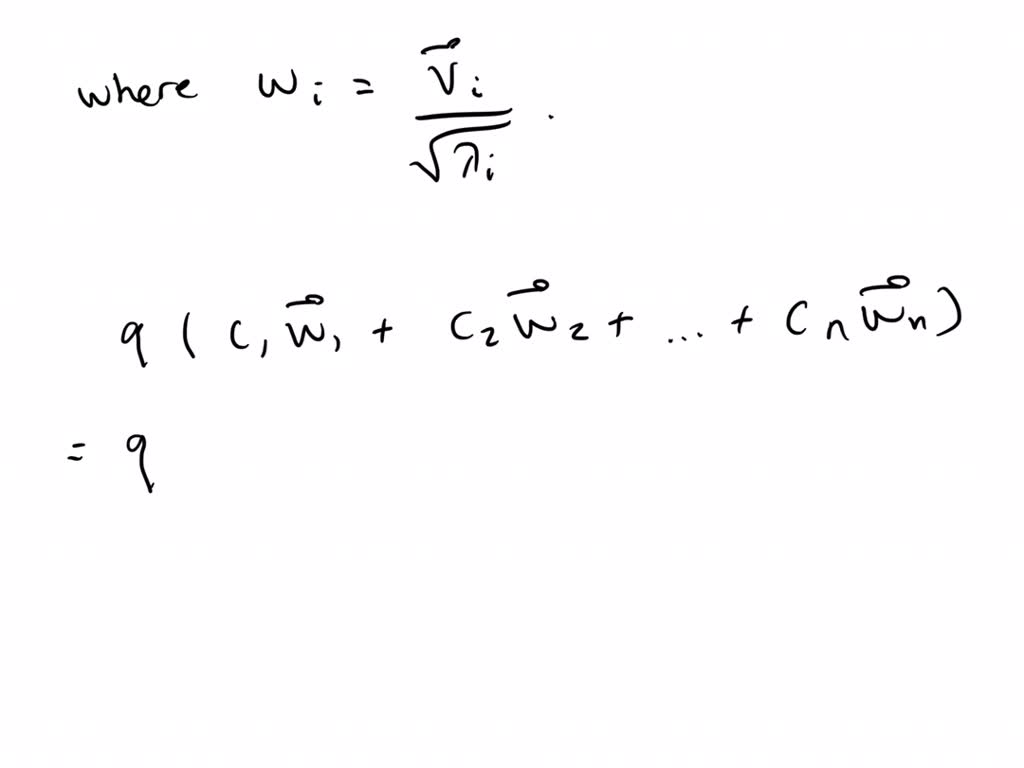 where wᵢ = v⃗ᵢ / √λᵢ .
q ( c₁w⃗₁ + c₂w⃗₂ + ... + cₙw⃗ₙ )
= q